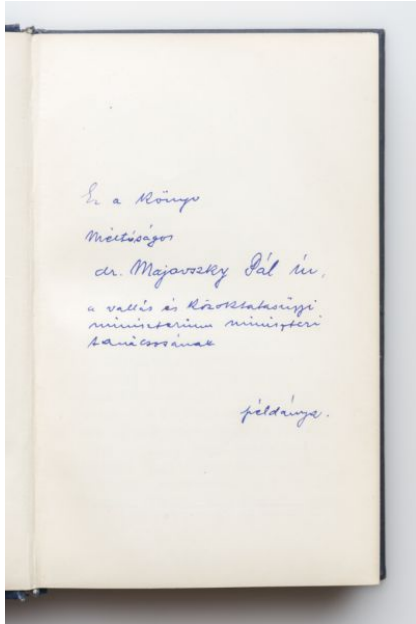 Ez a könyv
Méltóságos
dr. Majovszky Pál úr,
a vallás és közoktatásügyi
ministerium miniszteri
tanácsosának
példánya.